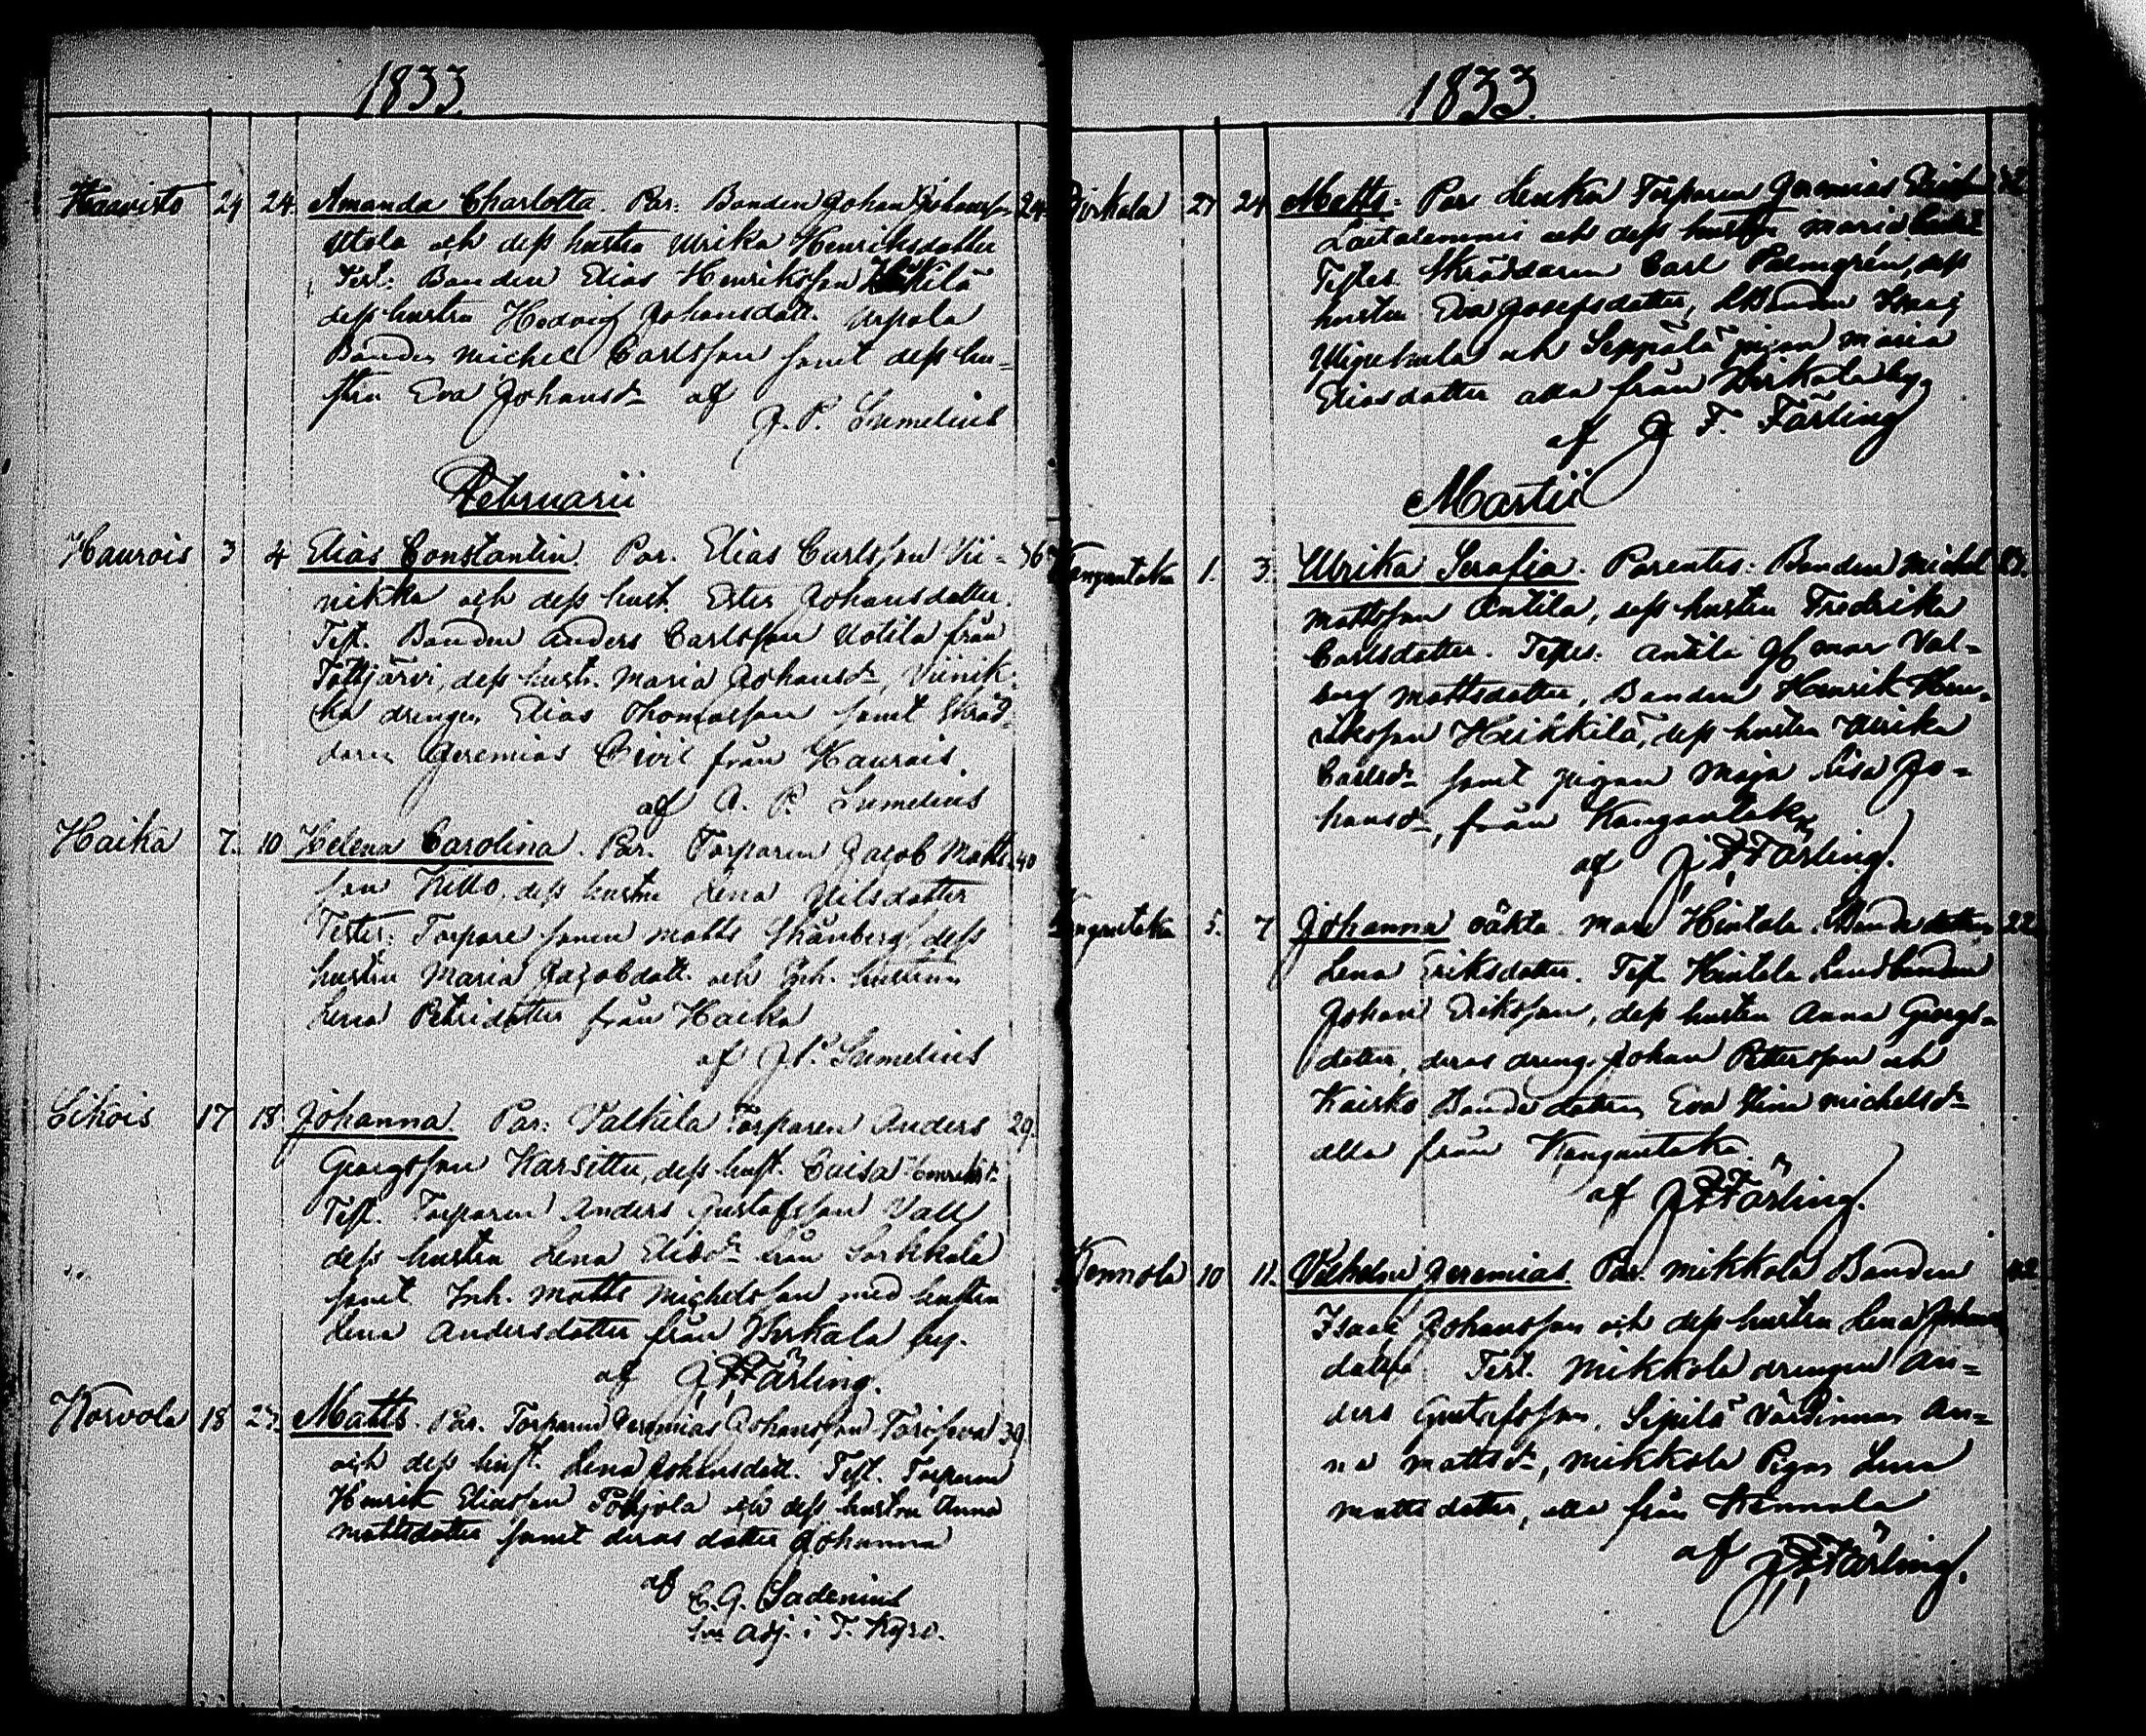 1833.
Haavisto 24 24. Amanda Charlotta. Par: Bonden Johan Johansson 24
Utola och dess hustru Ulrika Henriksdotter
Test. Bonden Elias Henriksson
dess hustru Hedvig Johansdott.
Bonden Michel Carlsson samt dess hu=
stru Eva Johansdr af
J. P. Lumelius
Februarii
Haurois 3 4 Elias Constantin. Par. Elias Carlsson Vii= 36
nikka och dess hust. Ester Johansdotter.
Test. Bonden Anders Carlsson Uotila från
Tottjärvi, dess hustr. Maria Johansdr, Viinik
ka drengen Elias Thomasson samt Skräd=
daren Jeremias Civil från Haurois.
af J. P. Lumelius
Haika 7. 10 Helena Carolina. Par. Torparen Jacob Matts 40
son Killo, dess hustru Lena Nilsdotter
Testes: Torpare sonen Matts Skånberg, dess
hustru Maria Jacobdott. och Inh. hustrun
Lena Petridotter från Haika
af J. P. Lumelius
Likois 17 18 Johanna. Par: Palkila Torparen Anders 29.
Georgsson Karsittu, dess hust. Caisa Henriksdr
Test. Torparen Anders Gustafsson Vall
dess hustru Lena Eliædr från Sarkkala
samt Inh. Matts Michelsson med hustru
Lena Andersdotter från Pirkala by.
af J. F. Färling.
Korvola 18 23. Matts. Par. Torparen Jeremias Johansson 39
och dess hust. Lena Johansdott. Test. Torparen
Henrik Eliasson Pohjola och dess hustru Anna
Mattsdotter samt deras dotter Johanna
af C. G. Sadenius
Adj. i T. Kyro.
1833.
Pirkala 21 24 Matts. Par Torparen Jeremias 42
och dess hustru Maria
Testes. Skräddaren Carl Palmgrén, dess
hustru Eva Josefsdotter, Bonden Isaac
och Seppälä pigan Maria
Eliasdotter alla från Pirkala by,
af J. F. Färling
Martii
Kangantaka 1. 3. Ulrika Serafia. Parentes: Bonden Michel
Mattsson Antila, dess hustru Fredrika
Carlsdotter. Testes: Antila Gl. mor Val=
borg Mattsdotter, Bonden Henrik Hen=
riksson Heikkilä, dess hustru Ulrika
Carlsdr samt pigan Maja Lisa Jo=
hansdr, från Kangantaka
af J. F. Färling.
Kangantaka 5. 7 Johanna oäkta. Mater Hintala Bonde dottren 22
Lena Eriksdotter. Test. Hintala Landbonden
Johan Eriksson, dess hustru Anna Georgs=
dotter, deras dreng Johan Pettersson och
Kaisko Bonde dottren Eva Stina Michelsdr
alla från Kangantaka.
af J. F. Färling.
Kennola 10 11. Vilhelm Jeremias Par. Mikkola Bonden 42
Isaac Johansson och dess hustru Lena Johans
dotter. Test. Mikkola drengen An=
ders Gustafsson, Sipilä Värdinnan An=
na Mattsdr, Mikkola Pigan Lena
Mattsdotter, alla från Kennola
af J. F. Färling.